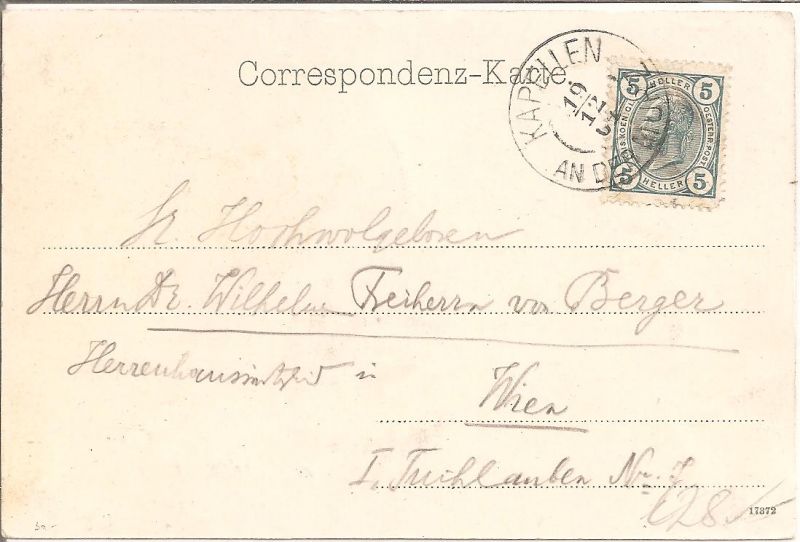 Correspondenz-Karte
KAPELLEN
19
12
AN DER
5 HELLER 5
5 HELLER 5
OESTERR. POST
Sr. Hochwolgeboren
Herrn Dr. Wilhelm Freiherrn von Berger
Herrenhausmitglied in
Wien
I. Tuchlauben Nr. 7
17372